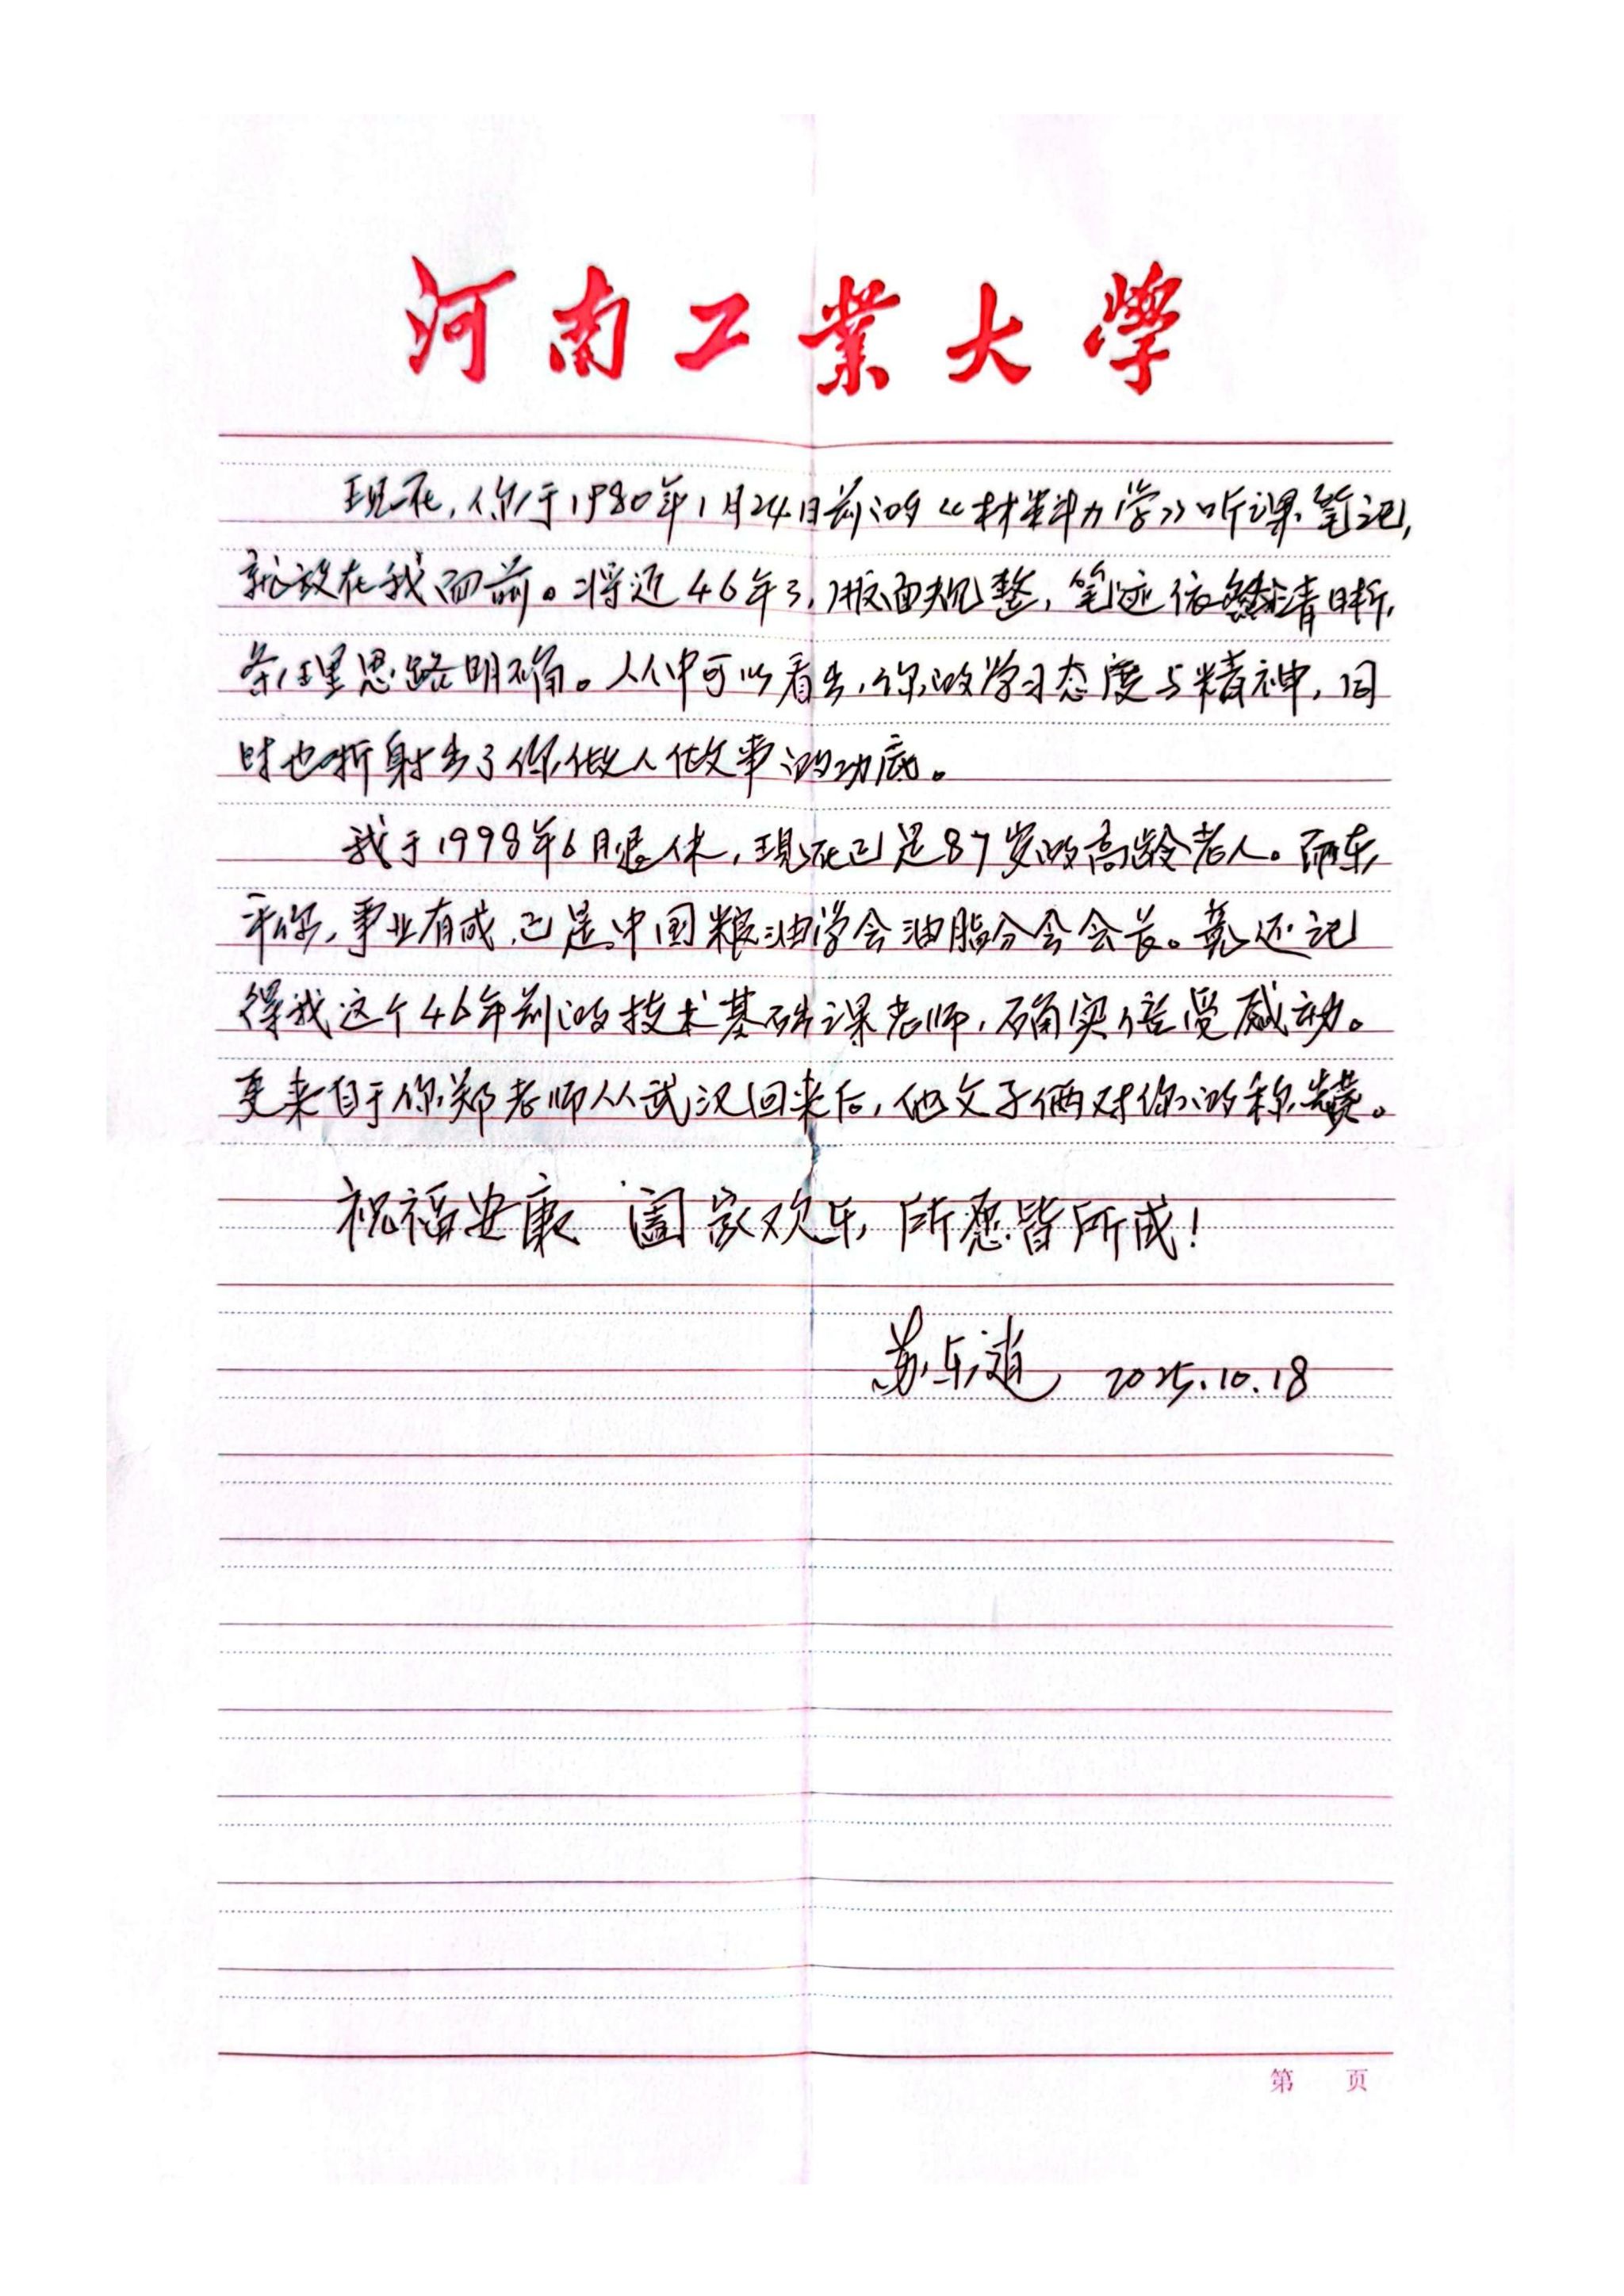 河南工業大學
现在,你于1980年1月24日前的《材料力学》听课笔记,
就放在我面前。将近46年了,版面规整,笔迹依然清晰,
条理思路明确。从中可以看出,你的学习态度与精神,同
时也折射出了你做人做事的功底。
我于1998年6月退休,现在已是87岁的高龄老人。而东
平你,事业有成,已是中国粮油学会油脂分会会长。竟还记
得我这个46年前的技术基础课老师,确实倍受感动。
更来自于你郑老师从武汉回来后,他父子俩对你的称赞。
祝福安康 阖家欢乐,所愿皆所成!
苏东道 2025.10.18
第 页